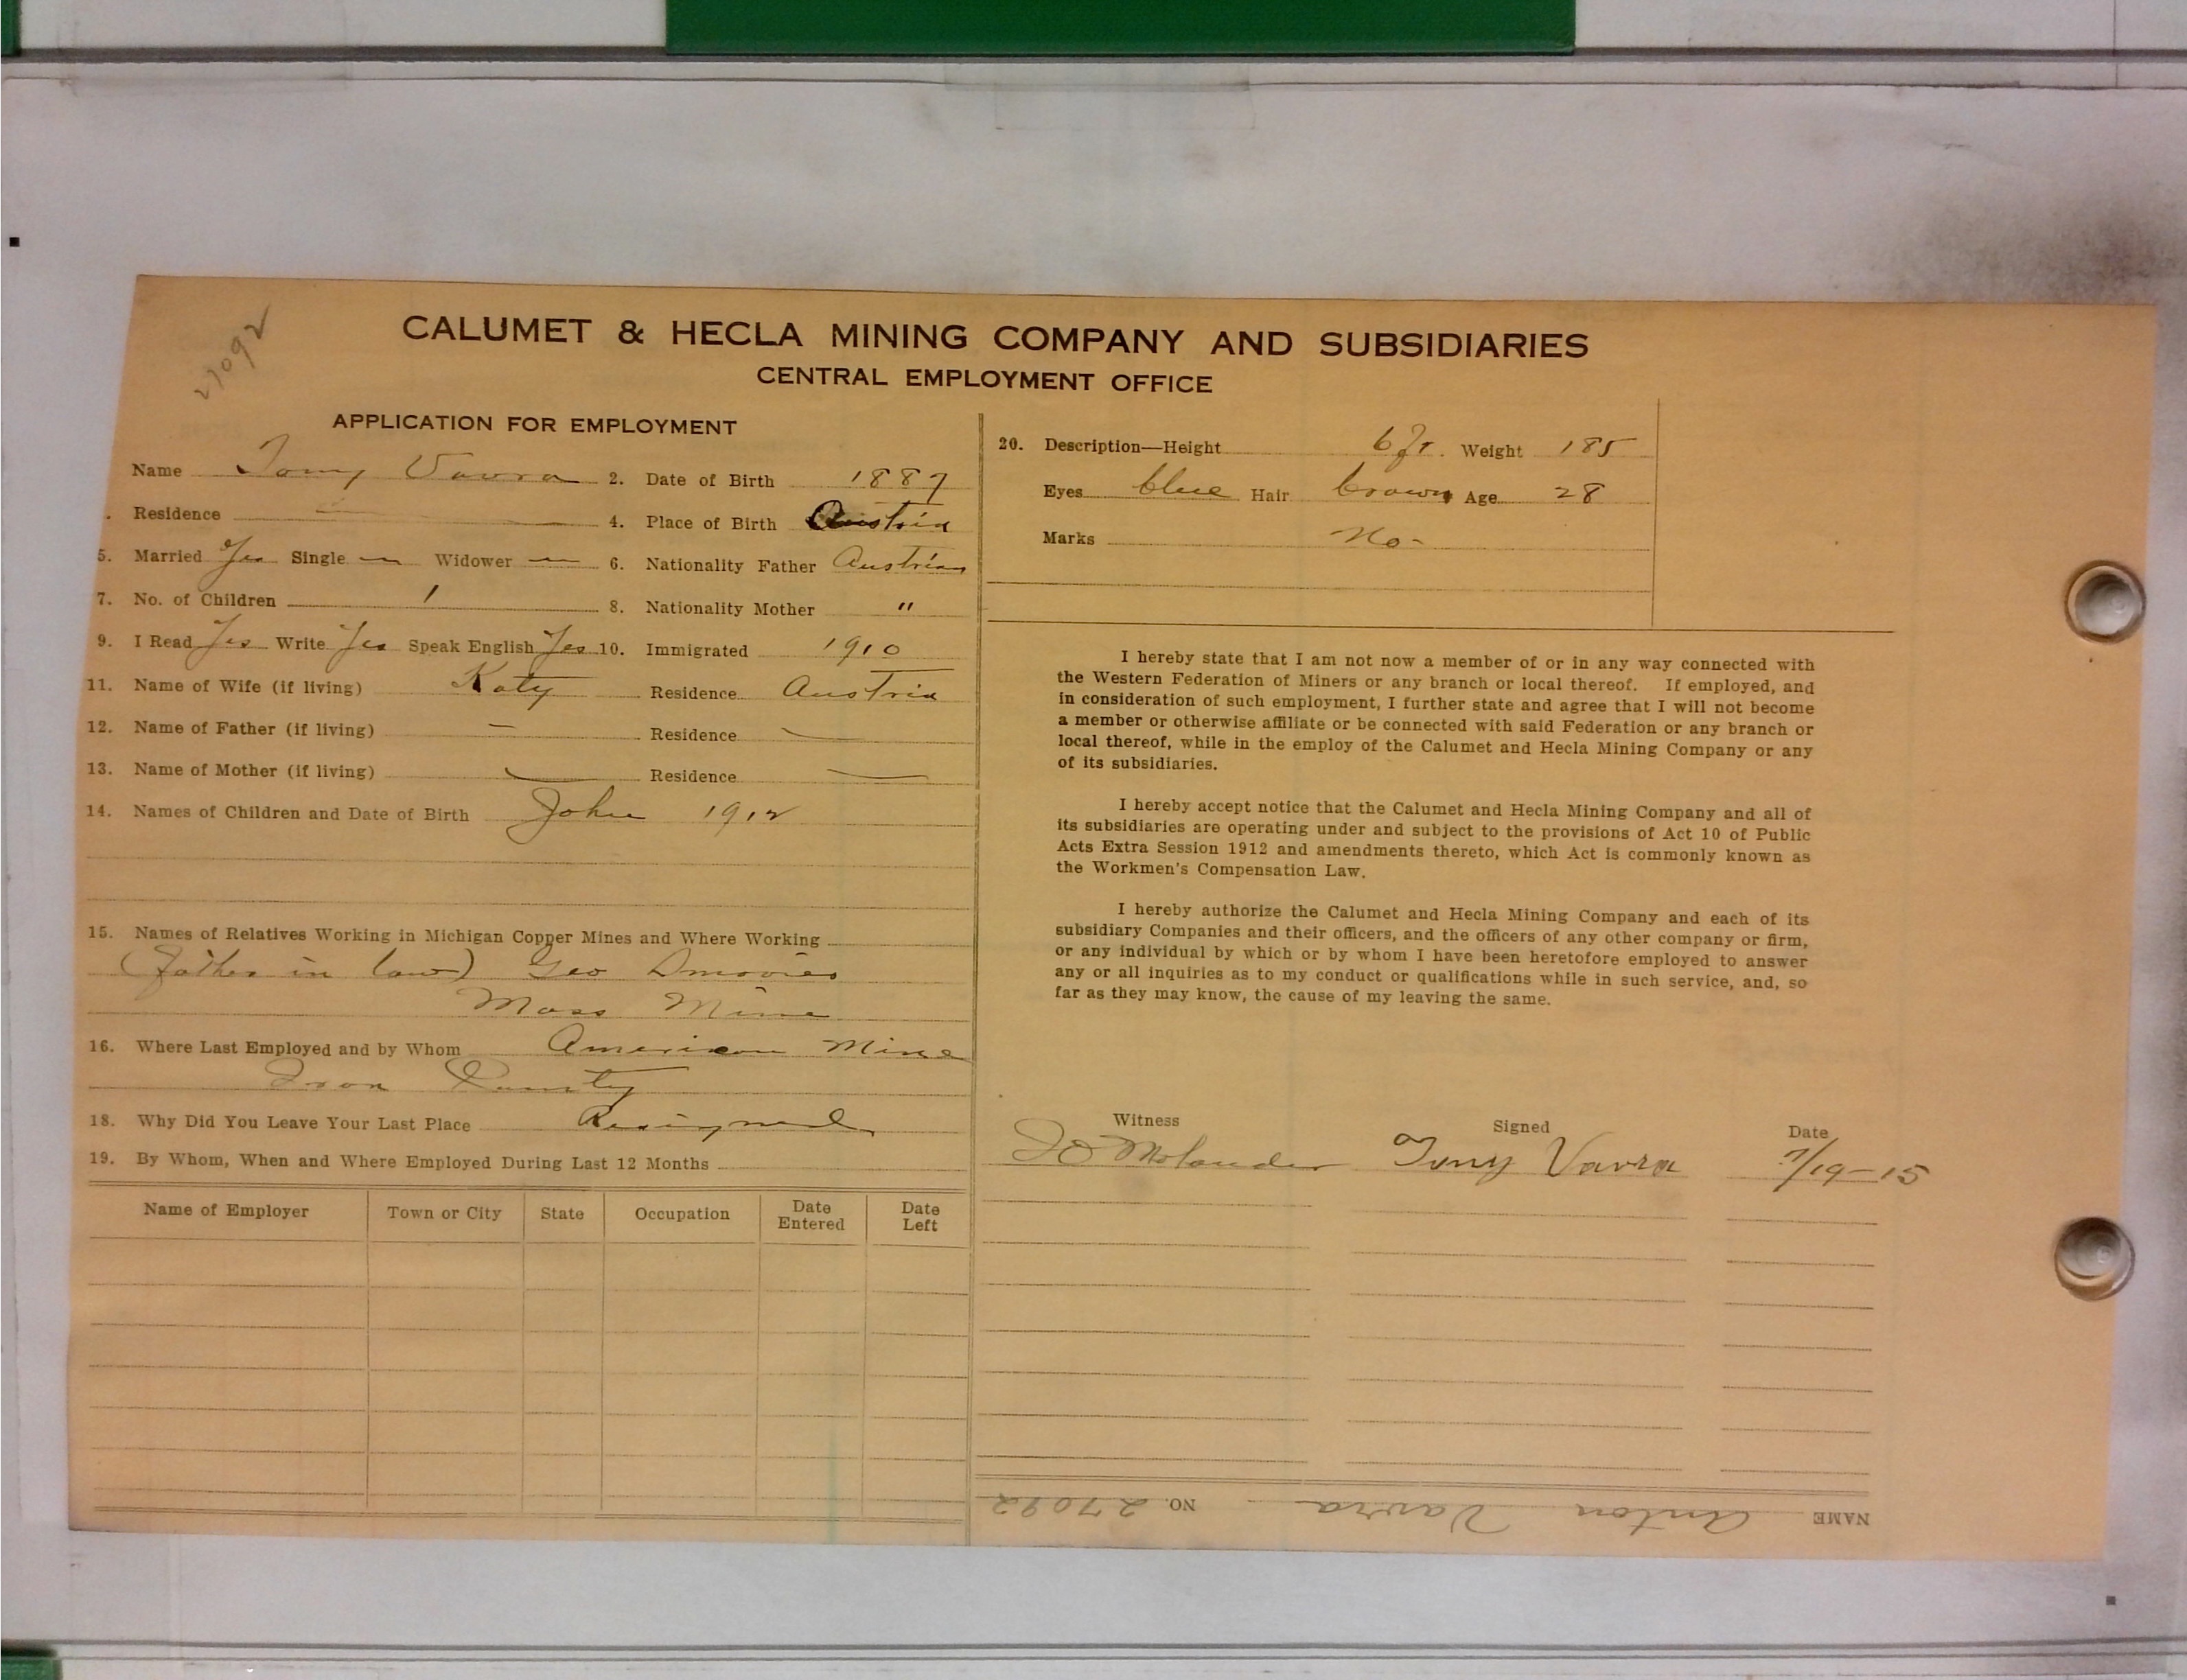 27092
CALUMET & HECLA MINING COMPANY AND SUBSIDIARIES
CENTRAL EMPLOYMENT OFFICE
APPLICATION FOR EMPLOYMENT
Name Tony Vavra 2. Date of Birth 1887
. Residence — 4. Place of Birth Austria
5. Married Yes Single — Widower — 6. Nationality Father Austrian
7. No. of Children 1 8. Nationality Mother "
9. I Read Yes Write Yes Speak English Yes 10. Immigrated 1910
11. Name of Wife (if living) Katy Residence Austria
12. Name of Father (if living) — Residence —
13. Name of Mother (if living) — Residence —
14. Names of Children and Date of Birth John 1912
15. Names of Relatives Working in Michigan Copper Mines and Where Working
(father in law) Geo
Mass Mine
16. Where Last Employed and by Whom American Mine
Iron County
18. Why Did You Leave Your Last Place Resigned
19. By Whom, When and Where Employed During Last 12 Months
Name of Employer Town or City State Occupation Date Entered Date Left
20. Description—Height 6 ft. Weight 185
Eyes blue Hair brown Age 28
Marks No-
I hereby state that I am not now a member of or in any way connected with
the Western Federation of Miners or any branch or local thereof. If employed, and
in consideration of such employment, I further state and agree that I will not become
a member or otherwise affiliate or be connected with said Federation or any branch or
local thereof, while in the employ of the Calumet and Hecla Mining Company or any
of its subsidiaries.
I hereby accept notice that the Calumet and Hecla Mining Company and all of
its subsidiaries are operating under and subject to the provisions of Act 10 of Public
Acts Extra Session 1912 and amendments thereto, which Act is commonly known as
the Workmen's Compensation Law.
I hereby authorize the Calumet and Hecla Mining Company and each of its
subsidiary Companies and their officers, and the officers of any other company or firm,
or any individual by which or by whom I have been heretofore employed to answer
any or all inquiries as to my conduct or qualifications while in such service, and, so
far as they may know, the cause of my leaving the same.
Witness Signed Date
Molander Tony Vavra 7/19-15
NAME Anton Vavra NO. 27092